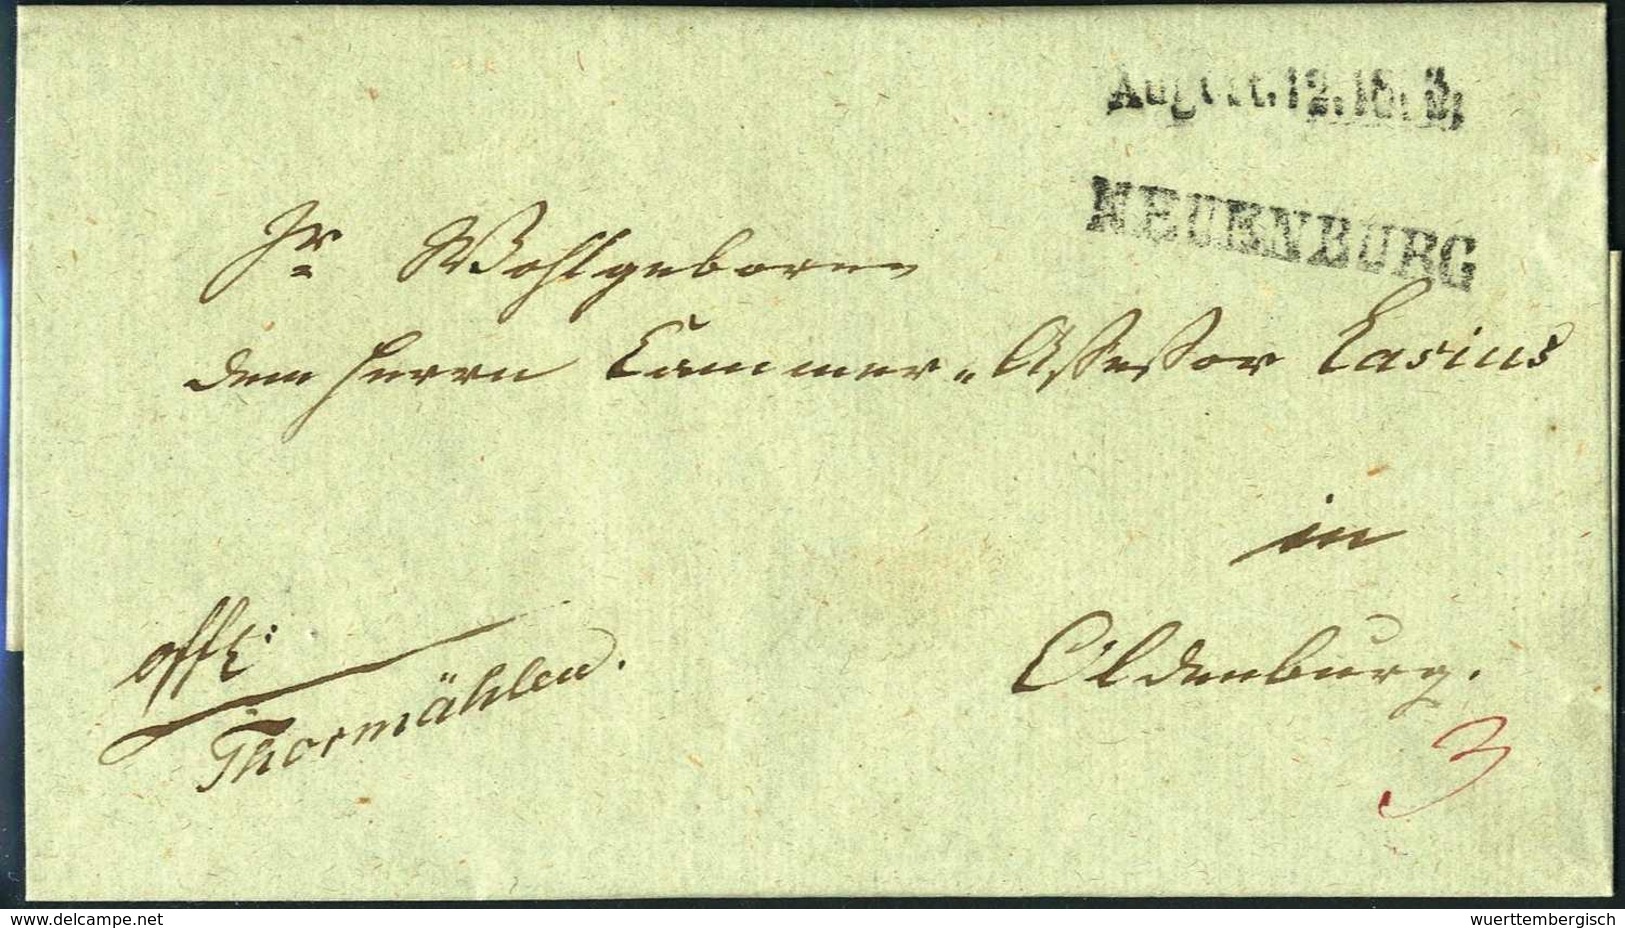 August. 12. 18
NEUENBURG
Sr Wohlgeboren
dem Herrn Cammer-Assessor Lasius
in
Oldenburg.
offl:
Thormählen.
3
www.delcampe.net
wuerttembergisch